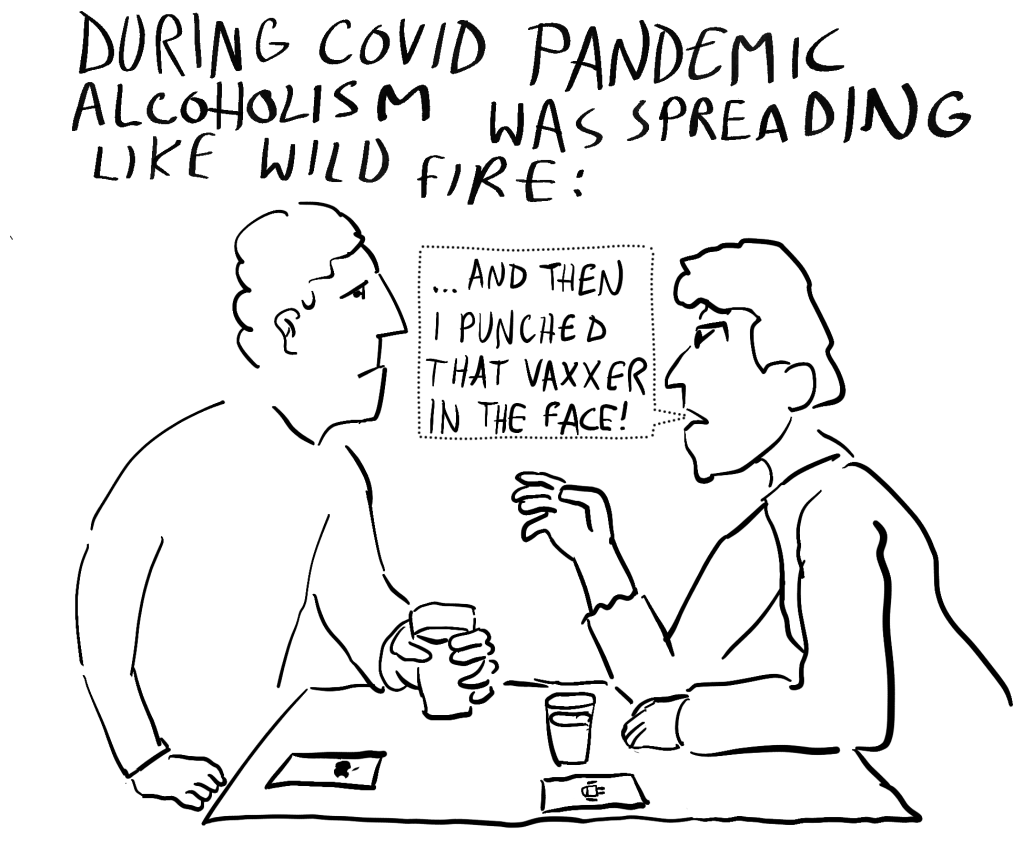 DURING COVID PANDEMIC
ALCOHOLISM WAS SPREADING
LIKE WILD FIRE:
...AND THEN
I PUNCHED
THAT VAXXER
IN THE FACE!